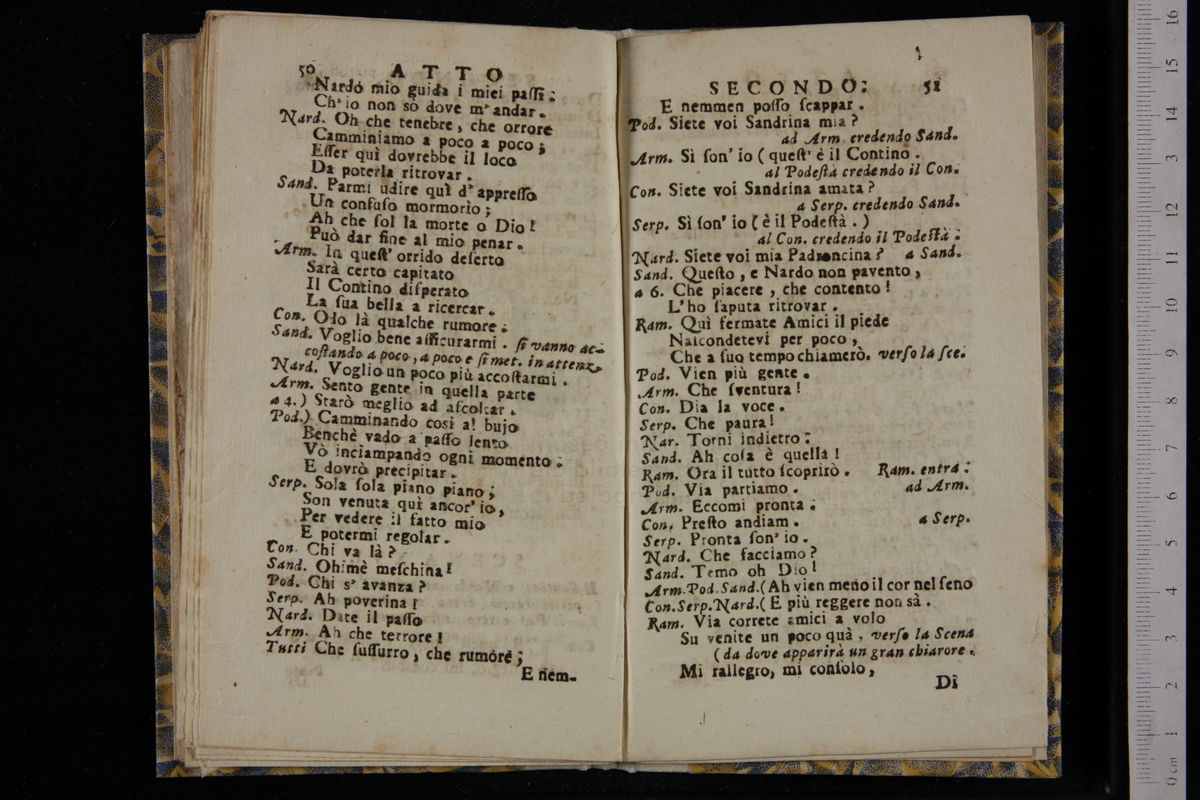 50 ATTO
Nardo mio guida i miei paſſi:
Ch'io non sò dove m'andar.
Nard. Oh che tenebre, che orrore
Camminiamo a poco a poco;
Eſſer quì dovrebbe il loco
Da poterla ritrovar.
Sand. Parmi udire quì d'appreſſo
Un confuſo mormorìo;
Ah che ſol la morte o Dio!
Può dar fine al mio penar.
Arm. In queſt' orrido deſerto
Sarà certo capitato
Il Contino diſperato
La ſua bella a ricercar.
Con. Odo là qualche rumore:
Sand. Voglio bene aſſicurarmi. ſi vanno ac-
coſtando a poco, a poco e ſi met. in attenz.
Nard. Voglio un poco più accoſtarmi.
Arm. Sento gente in quella parte
a 4.) Starò meglio ad aſcoltar.
Pod.) Camminando così al bujo
Benchè vado a paſſo lento
Vò inciampando ogni momento:
E dovrò precipitar.
Serp. Sola ſola piano piano;
Son venuta quì ancor' io,
Per vedere il fatto mio
E potermi regolar.
Con. Chi va là?
Sand. Ohimè meſchina!
Pod. Chi s' avanza?
Serp. Ah poverina!
Nard. Date il paſſo
Arm. Ah che terrore!
Tutti Che ſuſſurro, che rumore;
E nem-
SECONDO: 51
E nemmen poſſo ſcappar.
Pod. Siete voi Sandrina mia?
ad Arm. credendo Sand.
Arm. Sì ſon' io (queſt' è il Contino.
al Podeſtà credendo il Con.
Con. Siete voi Sandrina amata?
a Serp. credendo Sand.
Serp. Sì ſon' io (è il Podeſtà.)
al Con. credendo il Podeſtà:
Nard. Siete voi mia Padroncina? a Sand.
Sand. Queſto, e Nardo non pavento,
a 6. Che piacere, che contento!
L'ho ſaputa ritrovar.
Ram. Quì fermate Amici il piede
Naſcondetevi per poco,
Che a ſuo tempo chiamerò. verſo la ſce.
Pod. Vien più gente.
Arm. Che ſventura!
Con. Dia la voce.
Serp. Che paura!
Nar. Torni indietro:
Sand. Ah coſa è quella!
Ram. Ora il tutto ſcoprirò. Ram. entra:
Pod. Via partiamo. ad Arm.
Arm. Eccomi pronta:
Con. Preſto andiam. a Serp.
Serp. Pronta ſon' io.
Nard. Che facciamo?
Sand. Temo oh Dio!
Arm. Pod. Sand. (Ah vien meno il cor nel ſeno
Con. Serp. Nard. (E più reggere non sà.
Ram. Via correte amici a volo
Su venite un poco quà, verſo la Scena
(da dove apparirà un gran chiarore.
Mi rallegro, mi conſolo,
Di
0 cm 1 2 3 4 5 6 7 8 9 10 11 12 13 14 15 16